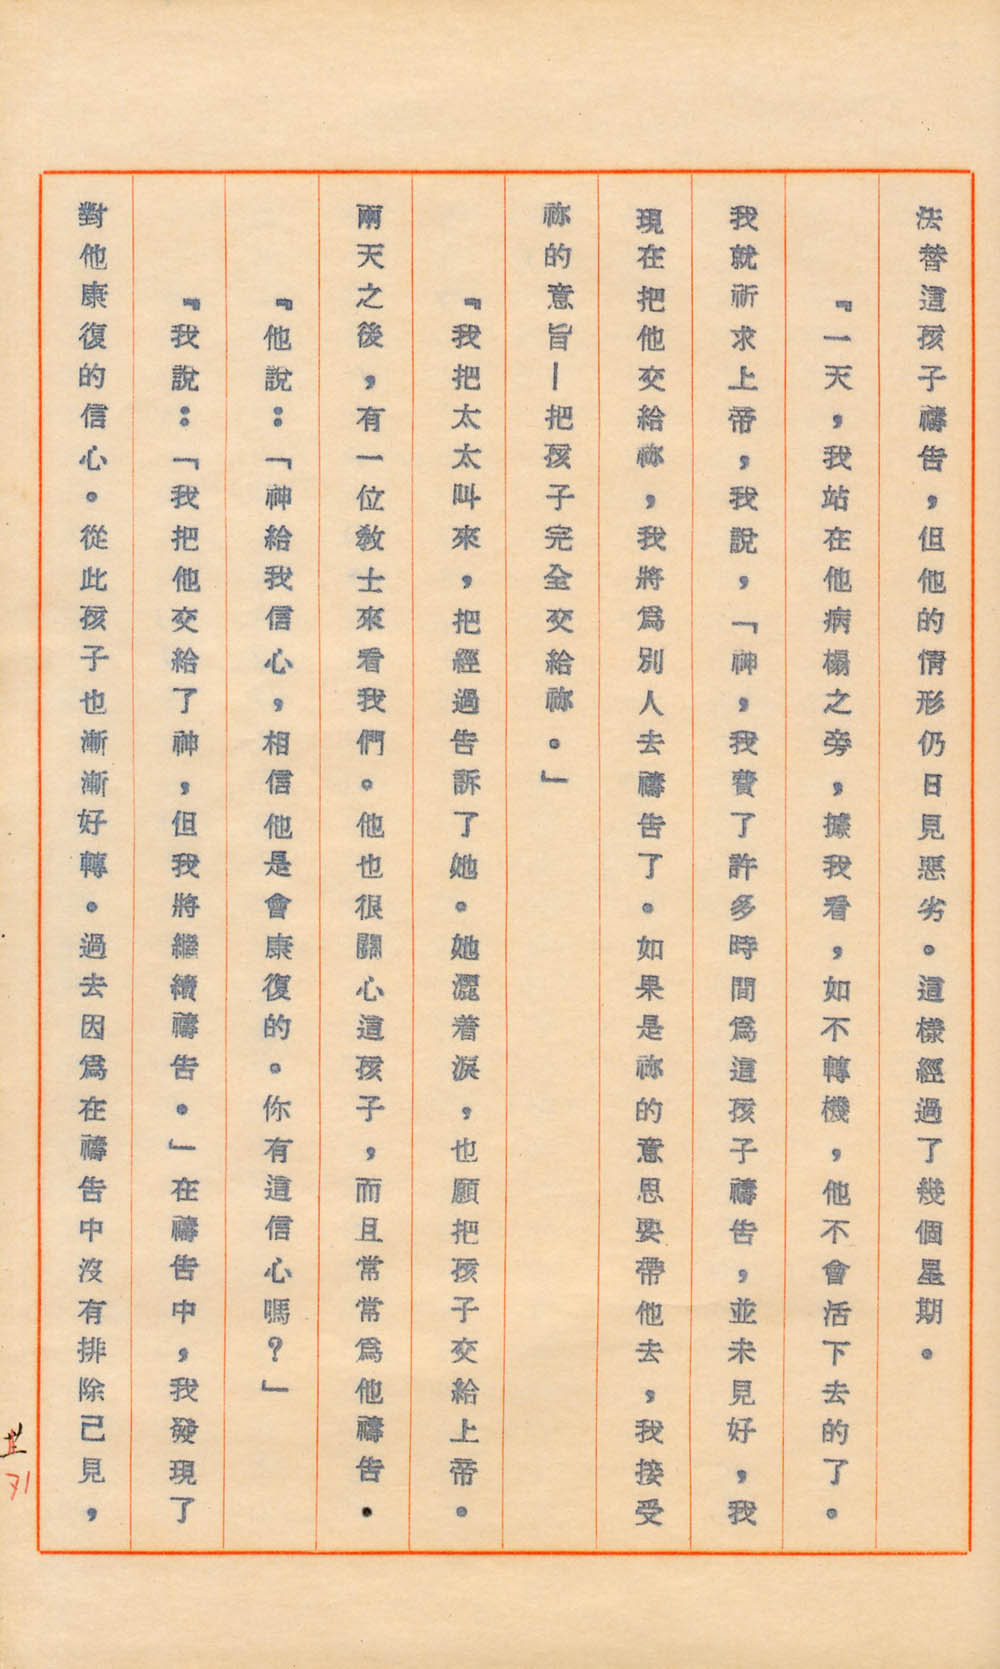 法替這孩子禱告，但他的情形仍日見惡劣。這樣經過了幾個星期。
『一天，我站在他病榻之旁，據我看，如不轉機，他不會活下去的了。
我就祈求上帝，我說，「神，我費了許多時間爲這孩子禱告，並未見好，我
現在把他交給祢，我將爲別人去禱告了。如果是祢的意思要帶他去，我接受
祢的意旨—把孩子完全交給祢。」
『我把太太叫來，把經過告訴了她。她灑着淚，也願把孩子交給上帝。
兩天之後，有一位教士來看我們。他也很關心這孩子，而且常常爲他禱告．
『他說：「神給我信心，相信他是會康復的。你有這信心嗎？」
『我說：「我把他交給了神，但我將繼續禱告。」在禱告中，我發現了
對他康復的信心。從此孩子也漸漸好轉。過去因爲在禱告中沒有排除己見，
71